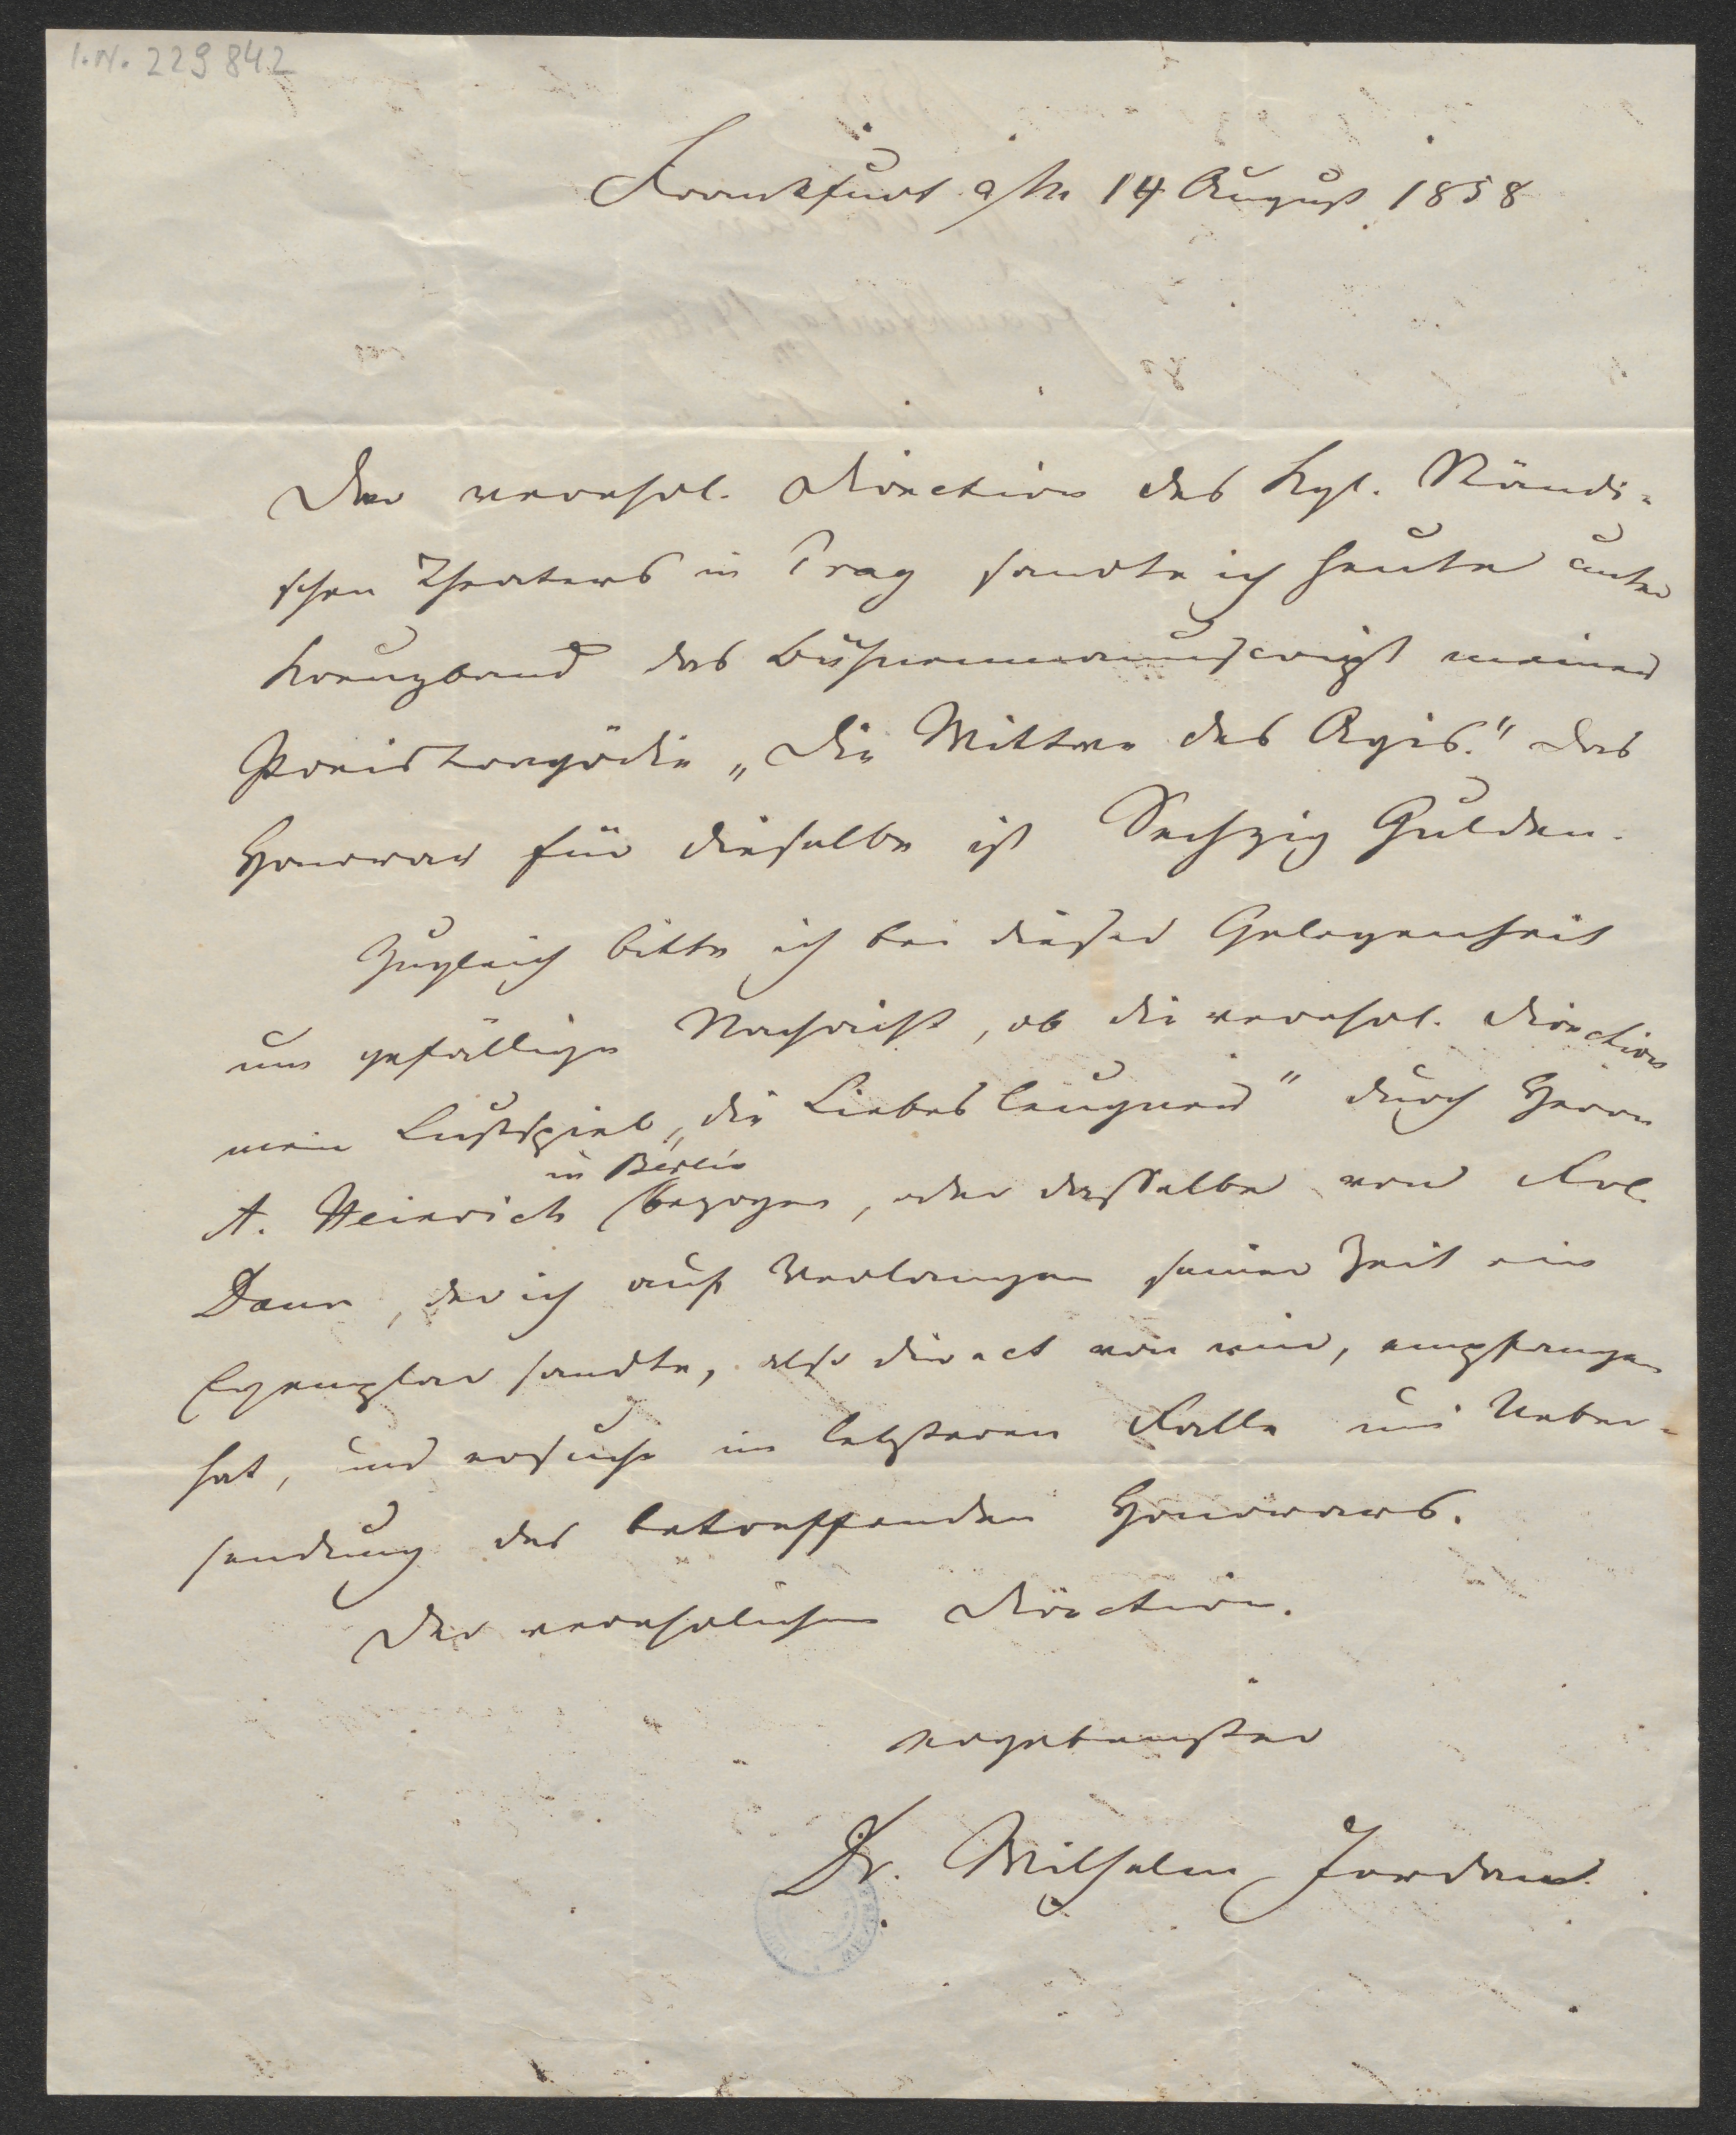 I.N. 229842
Frankfurt a/M 14 August 1858
Der verehrl. Direction des Kgl. Ständi-
schen Theaters in Prag sandte ich heute unter
Kreuzband das Bühnenmanuscript meiner
Preistragödie „Die Wittwe des Agis." Das
Honorar für dieselbe ist Sechzig Gulden.
Zugleich bitte ich bei dieser Gelegenheit
um gefällige Nachricht, ob die verehrl. Direction
mein Lustspiel „die Liebesleugner" durch Herrn
in Berlin
A. Heinrich bezogen, oder dasselbe von Frl.
Daun, der ich auf Verlangen seiner Zeit ein
Exemplar sandte, also direct von mir, empfangen
hat, und ersuche im letzteren Falle um Ueber-
sendung des betreffenden Honorars.
Der verehrlichen Direction.
ergebenster
Dr. Wilhelm Jordan.